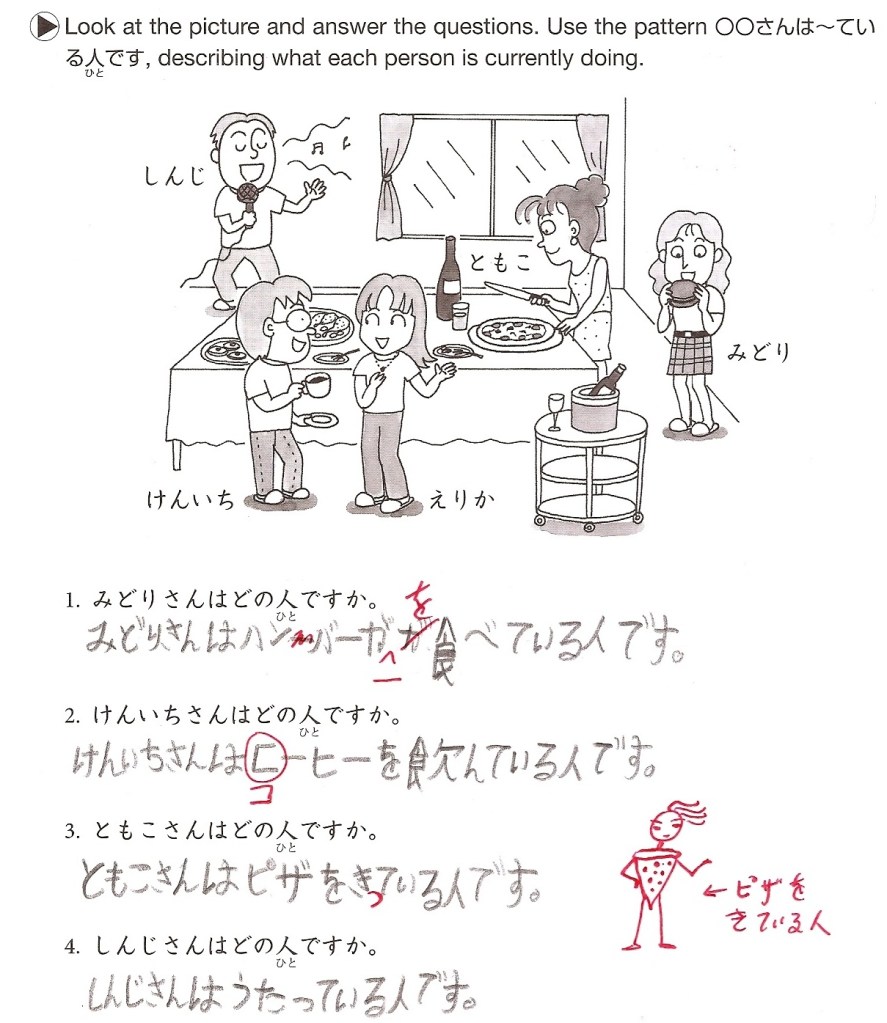 Look at the picture and answer the questions. Use the pattern ○○さんは〜てい
る人です, describing what each person is currently doing.
ひと
しんじ
ともこ
みどり
けんいち
えりか
1. みどりさんはどの人ですか。
ひと
を
みどりさんはハンバーガが食べている人です。
ー
2. けんいちさんはどの人ですか。
ひと
けんいちさんはコーヒーを飲んでいる人です。
コ
3. ともこさんはどの人ですか。
ひと
ともこさんはピザをきている人です。
っ
←ピザを
きている人
4. しんじさんはどの人ですか。
ひと
しんじさんはうたっている人です。